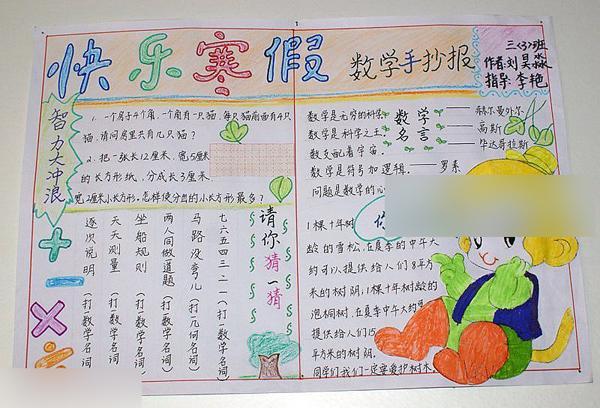 快乐寒假 数学手抄报
三〈3〉班
作者:刘昊淼
指导:李艳
智力大冲浪
1. 一个房子4个角,一个角有一只猫,每只猫前面有4只
猫,请问房里共有几只猫?
2. 把一张长12厘米、宽5厘米
的长方形纸,分成长3厘米、
宽2厘米小长方形,怎样使分出的小长方形最多?
请你猜一猜
七六五四三二一(打一数学名词)
马路没弯儿(打一几何名词)
两人同做道题(打一数学名词)
坐船规则(打一数学名词)
天天测量(打一数学名词)
逐次说明(打一数学名词)
数学名言
数学是无穷的科学 —— 赫尔曼外尔
数学是科学之王 —— 高斯
数支配着宇宙。—— 毕达哥拉斯
数学是符号加逻辑。—— 罗素
问题是数学的心
你
1棵十年树
龄的雪松,在夏季的中午大
约可以提供给人们8平方
米的树阴;1棵十年树龄的
泡桐树,在夏季中午大约
提供给人们15
平方米的树阴。
同学们我们一定要爱护树木。